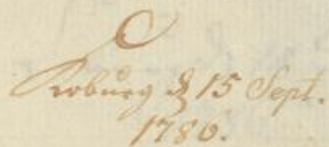 C
Koburg d 15 Sept.
1786.